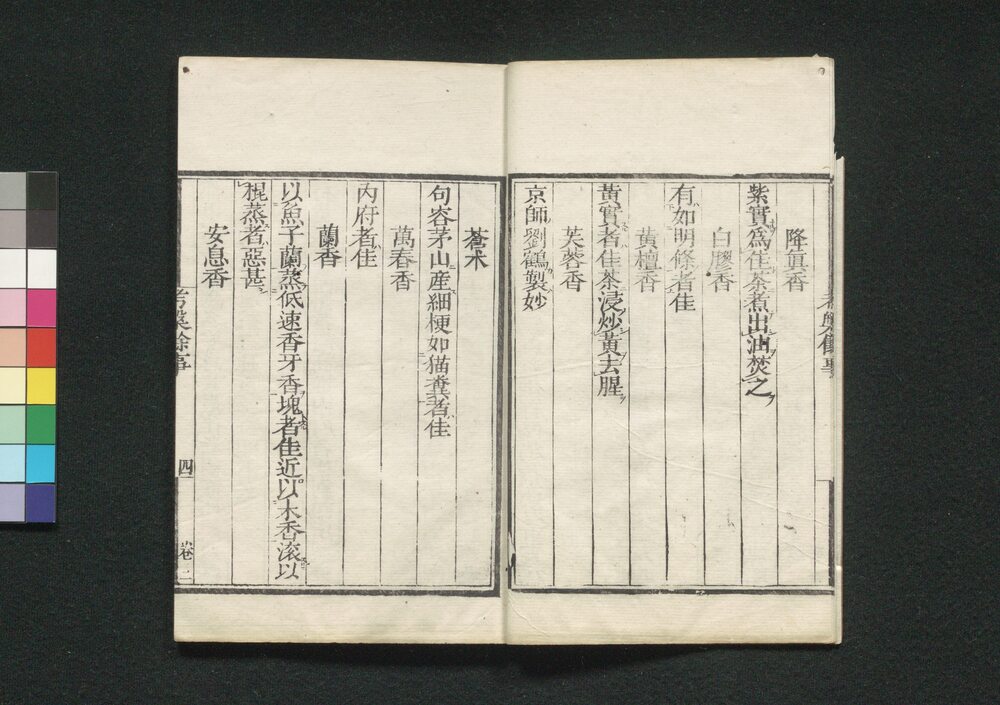 降真香
紫實爲佳茶煮出油焚之
白膠香
有如明條者佳
黃檀香
黃實者佳茶浸炒黃去腥
芙蓉香
京師劉鶴製妙
蒼朮
句容茅山産細梗如猫糞者佳
萬春香
內府者佳
蘭香
以魚子蘭蒸低速香牙香塊者佳近以木香滚以
棍蒸者惡甚
安息香
考槃餘事
四
卷二